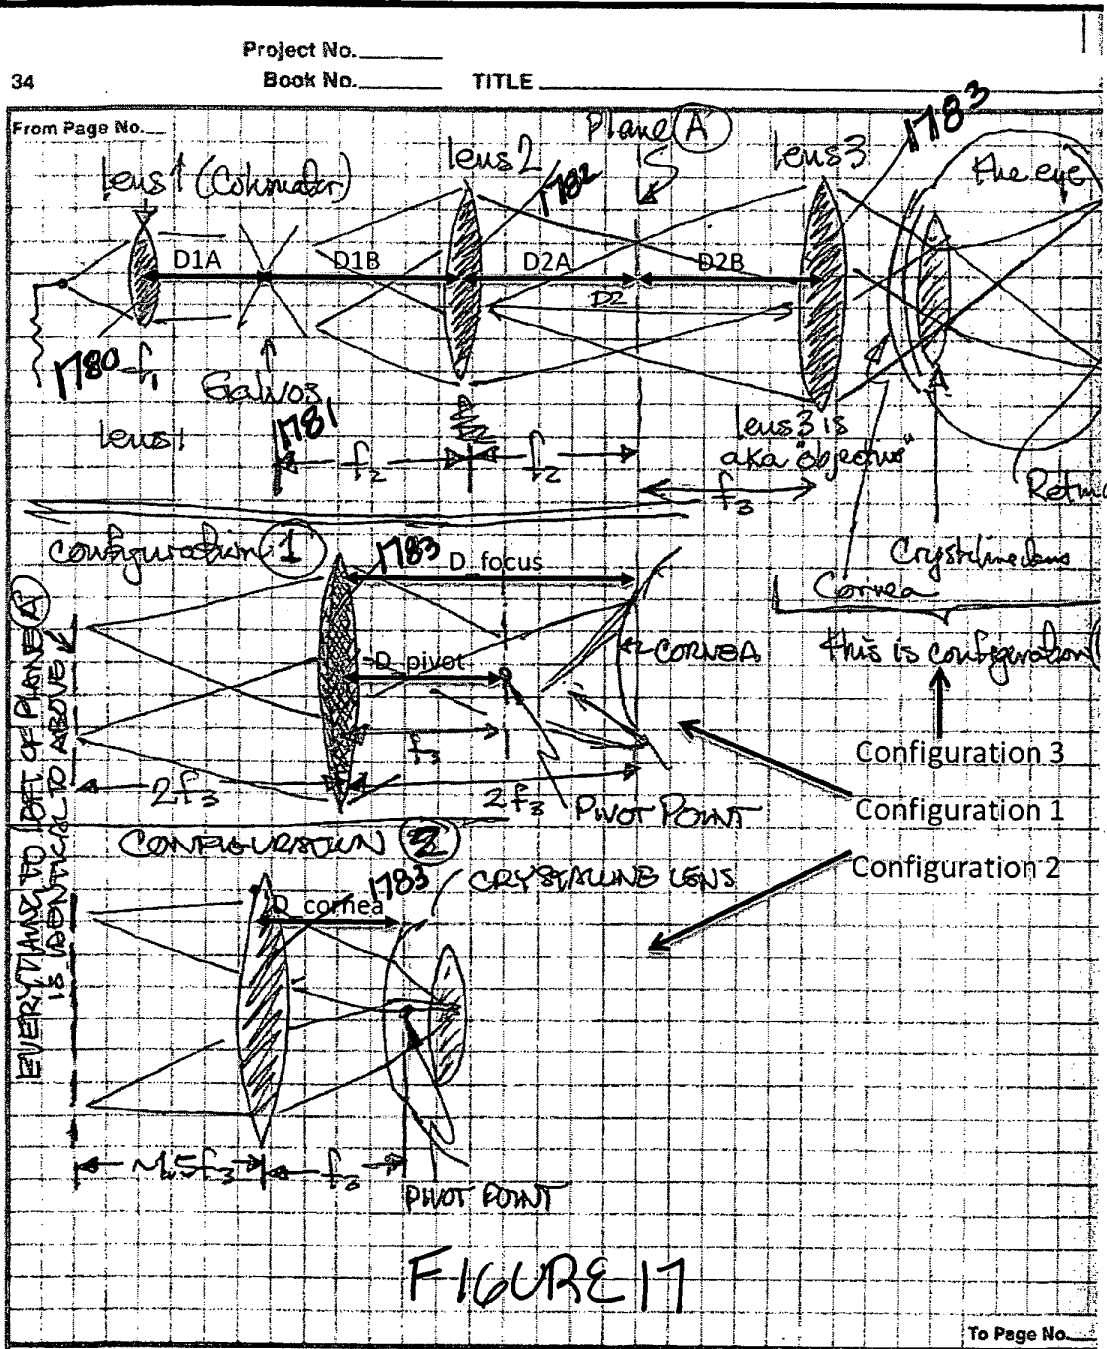 Project No.
34 Book No. TITLE
From Page No.
Plane A
1783
lens1 (Collimator)
lens2
1782
lens3
the eye
D1A D1B D2A D2B
D2
1780 f1
Galvos
1781
lens1
f2 f2
lens3 is
aka "objective"
f3
Retina
Crystalline lens
Cornea
this is configuration
configuration 1
1783
D_focus
D_pivot
CORNEA
f3
2f3 2f3
PIVOT POINT
Configuration 3
Configuration 1
Configuration 2
EVERYTHING TO LEFT OF PLANE A
IS IDENTICAL TO ABOVE
CONFIGURATION 2
1783
CRYSTALLINE LENS
D_cornea
~1.5f3 f3
PIVOT POINT
FIGURE 17
To Page No.